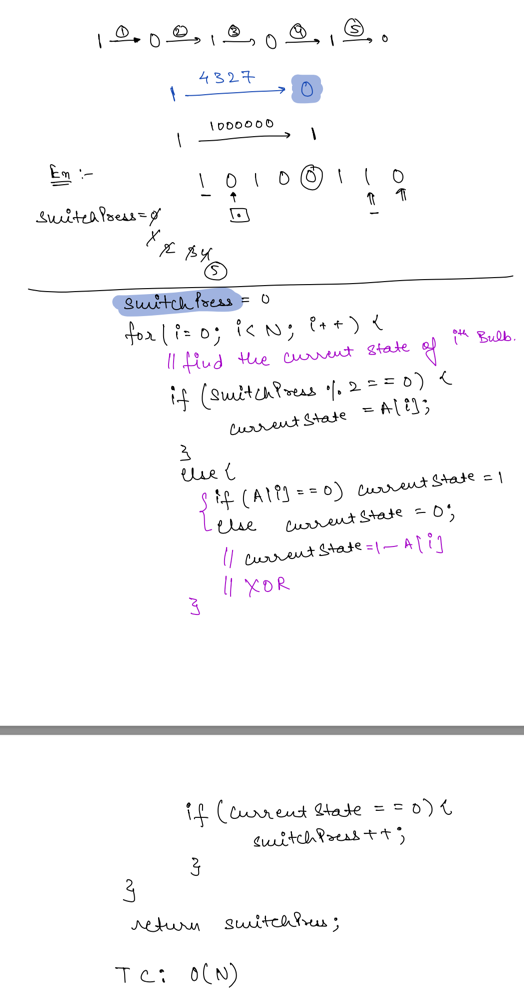 1 →① 0 →② 1 →③ 0 →④ 1 →⑤ 0
1 →4327 0
1 →1000000 1
En :-
1 0 1 0 0 1 1 0
switchPress = 0
1
2 3 4
5
switchPress = 0
for(i=0; i<N; i++) {
// find the current state of ith Bulb.
if (switchPress % 2 == 0) {
currentState = A[i];
}
else {
if (A[i] == 0) currentState = 1
else currentState = 0;
// currentState = 1 - A[i]
// XOR
}
if (currentState == 0) {
switchPress++;
}
}
return switchPress;
TC: O(N)